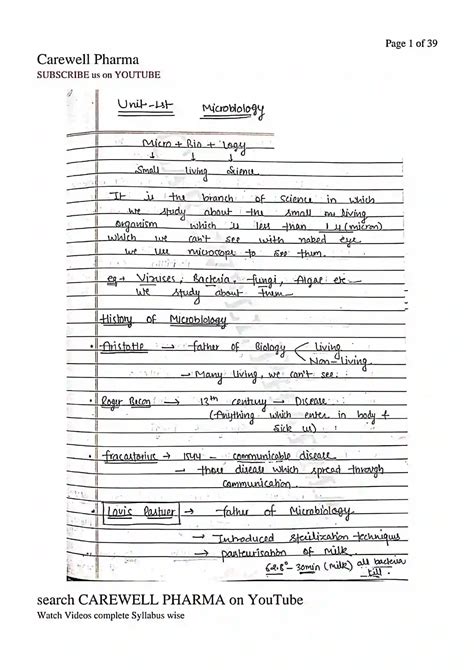 Page 1 of 39
Carewell Pharma
SUBSCRIBE us on YOUTUBE
Unit-1st Microbiology
Micro + Bio + logy
↓ ↓ ↓
Small living Science
It is the branch of Science in which
we study about the small living
organism which is less than 1 μ (micron)
which we can't see with naked eye
we use microscope to see them.
eg → Viruses, Bacteria, fungi, Algae etc
we study about them
History of Microbiology
• Aristotle → father of Biology < living
Non-living.
→ Many living, we can't see.
• Roger Bacon → 13th century → Disease
(Anything which enter in body &
Sick us)
• fracastorius → 1544 - communicable disease
→ those disease which spread through
Communication.
• Louis Pastuer → father of Microbiology.
→ Introduced sterilization techniques
→ pasteurisation of Milk
62.8° - 30min (milk) all bacteria
kill.
search CAREWELL PHARMA on YouTube
Watch Videos complete Syllabus wise